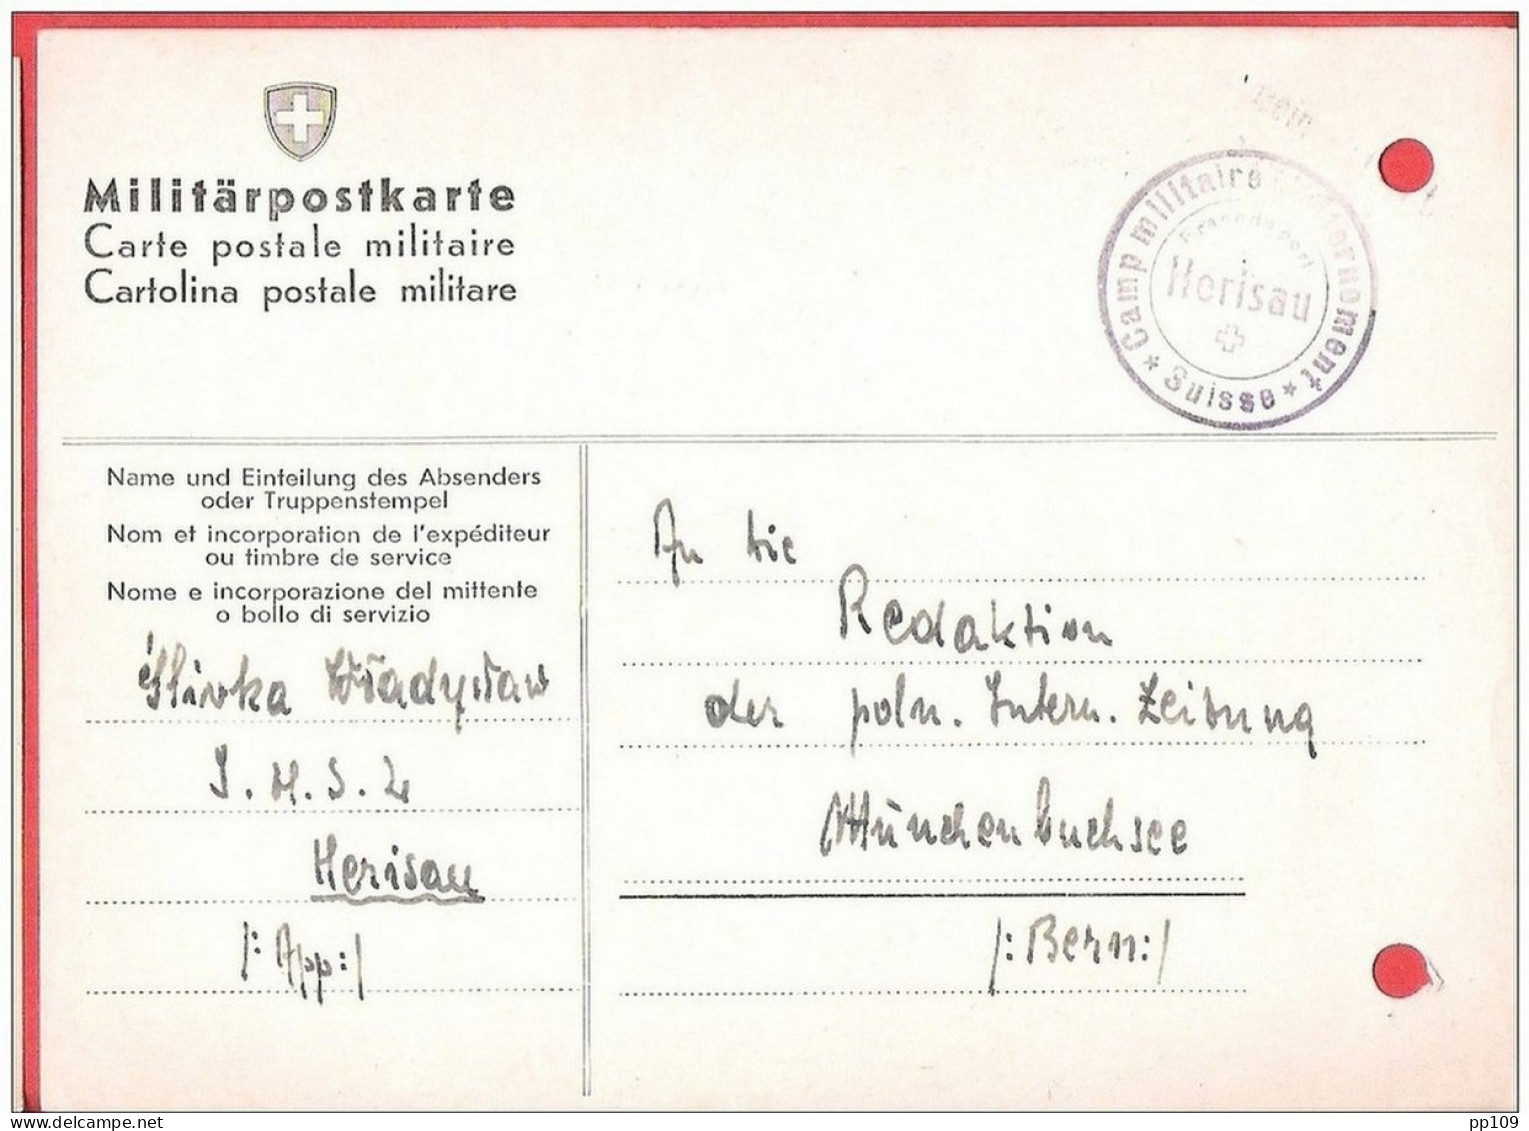 Militärpostkarte
Carte postale militaire
Cartolina postale militare
Camp militaire d'internement
Herisau
* Suisse *
Name und Einteilung des Absenders
oder Truppenstempel
Nom et incorporation de l'expéditeur
ou timbre de service
Nome e incorporazione del mittente
o bollo di servizio
Śliwka Władysław
Herisau
/: App :/
An die
Redaktion
der poln. Intern. Zeitung
Münchenbuchsee
/: Bern :/
www.delcampe.net
pp109